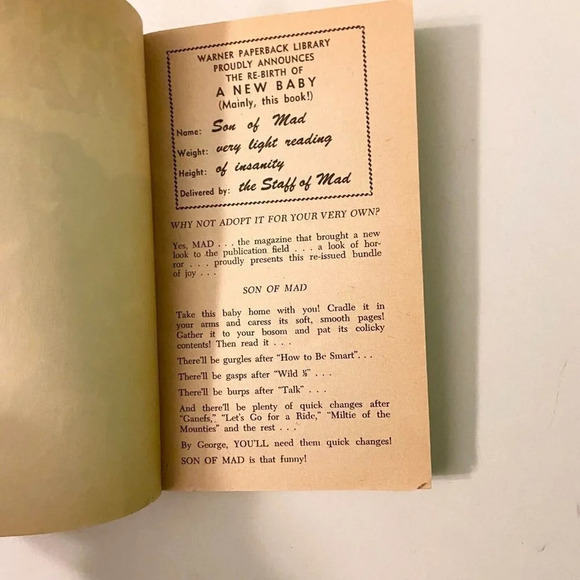 WARNER PAPERBACK LIBRARY
PROUDLY ANNOUNCES
THE RE-BIRTH OF
A NEW BABY
(Mainly, this book!)
Name: Son of Mad
Weight: very light reading
Height: of insanity
Delivered by: the Staff of Mad
WHY NOT ADOPT IT FOR YOUR VERY OWN?
Yes, MAD . . . the magazine that brought a new
look to the publication field . . . a look of hor-
ror . . . proudly presents this re-issued bundle
of joy . . .
SON OF MAD
Take this baby home with you! Cradle it in
your arms and caress its soft, smooth pages!
Gather it to your bosom and pat its colicky
contents! Then read it . . .
There'll be gurgles after “How to Be Smart”. . .
There'll be gasps after “Wild ½” . . .
There'll be burps after “Talk” . . .
And there'll be plenty of quick changes after
“Ganefs,” “Let's Go for a Ride,” “Miltie of the
Mounties” and the rest . . .
By George, YOU'LL need them quick changes!
SON OF MAD is that funny!